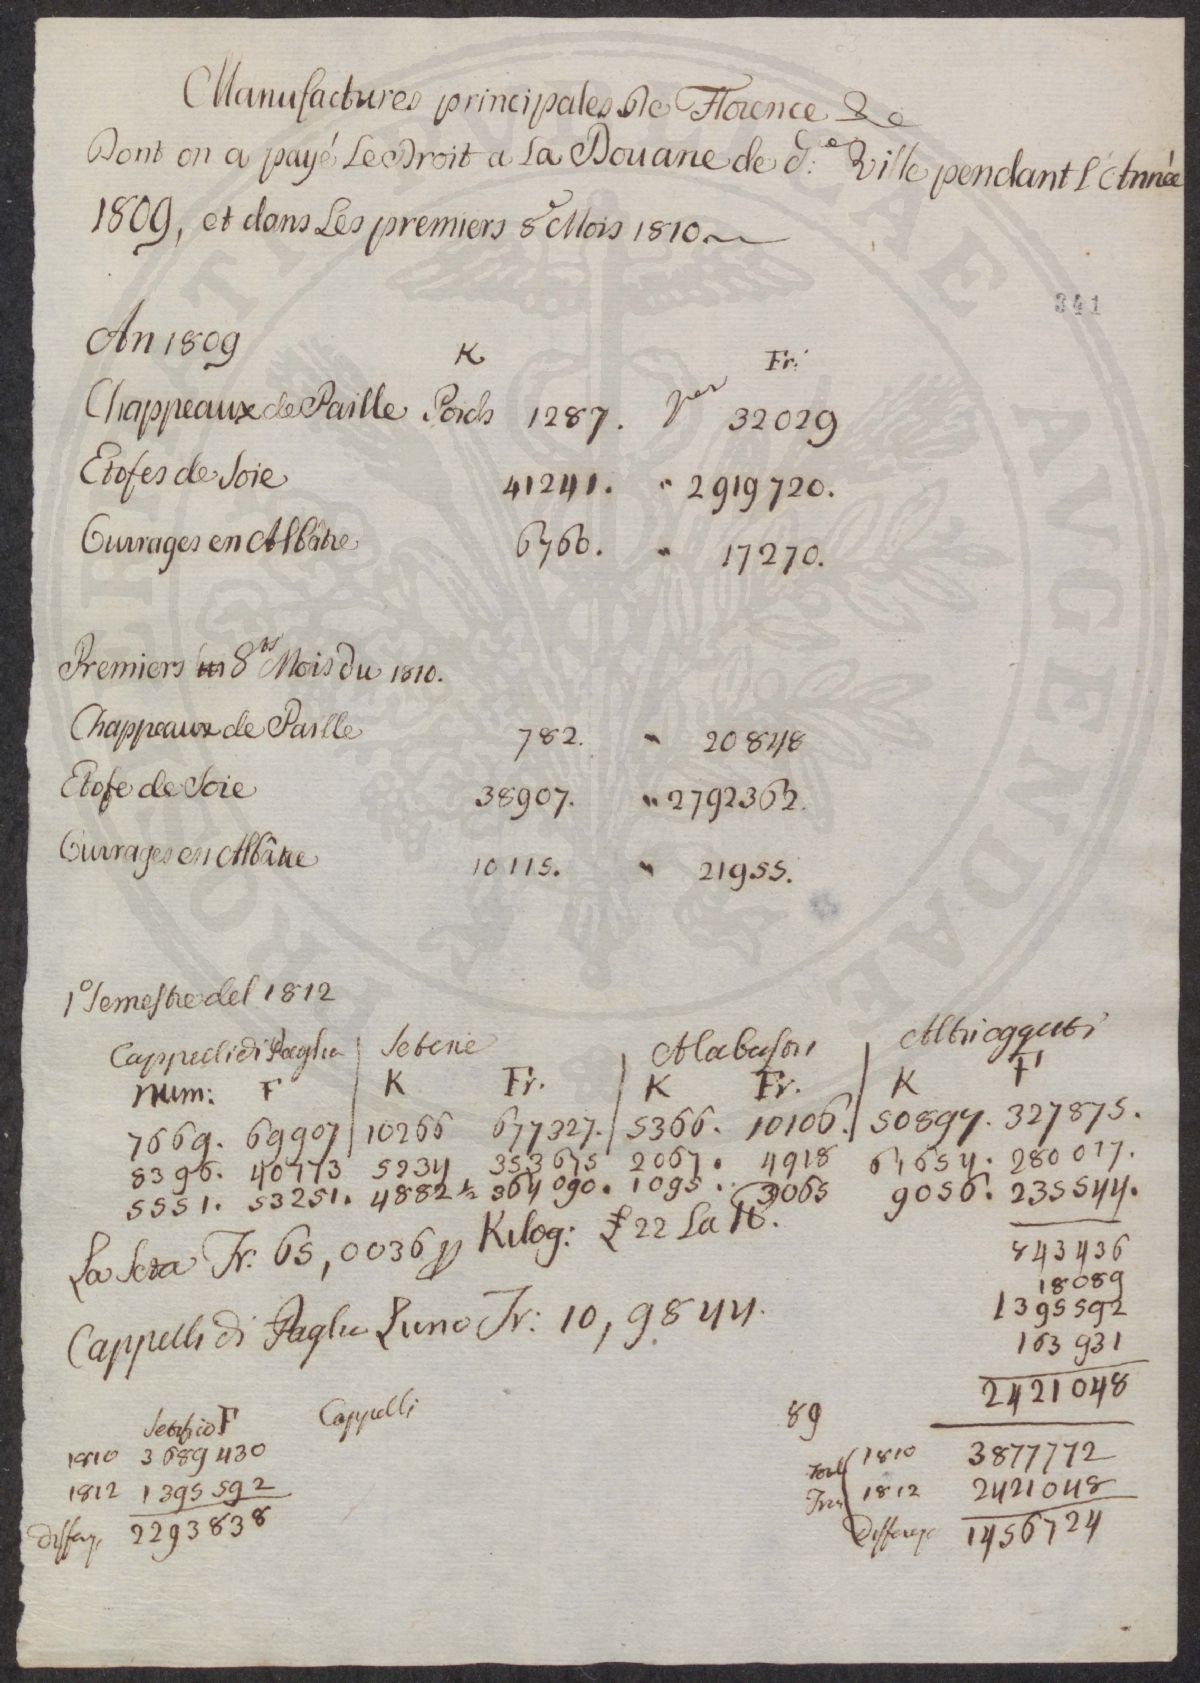 Manufactures principales de Florence &c
Dont on a payé Le Droit a La Douane de d.e Ville pendant L'Année
1809, et dans Les premiers 8 Mois 1810
341
An 1809
K Fr.
Chappeaux de Paille Poids 1287. per 32029
Etofes de Soie 41241. " 2919720.
Ouvrages en Albâtre 6760. " 17270.
Premiers 8 Mois Du 1810.
Chappeaux de Paille 782. " 20848
Etofe de Soie 38907. " 2792362.
Ouvrages en Albâtre 10115. " 21955.
1° Semestre del 1812
Cappelli di Paglia Seterie Alabastri Altri oggetti
Num: F K Fr. K Fr. K F
7669. 69907 10266 677327. 5366. 10106. 50897. 327875.
8396. 40773 5234 353675 2067. 4918 61654. 280017.
5551. 53251. 4882 ½ 364090. 1095. 3065 9056. 235544.
La Seta Fr. 65,0036 p Kilog: £ 22 La lb.
843436
18089
1395592
163931
2421048
Cappelli di Paglia L'uno Fr: 10,9844.
Setificio F Cappelli
1810 3689430
1812 1395592
Differ 2293838
89
1810 3877772
1812 2421048
Differe 1456724
PVBLICAE AVGENDAE